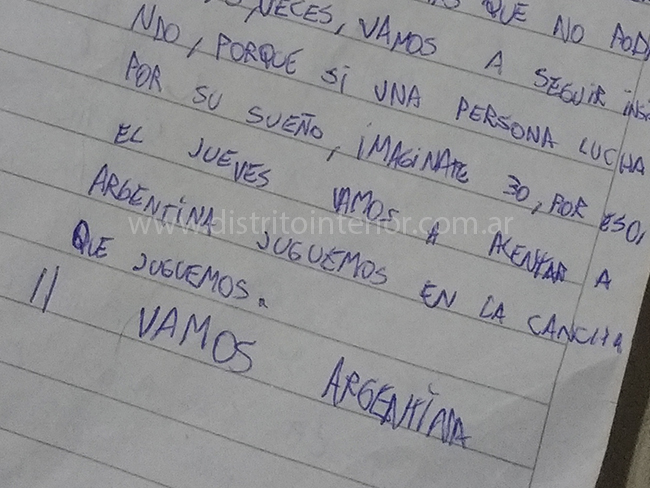 QUE NO POD
VECES, VAMOS A SEGUIR INSI
NDO, PORQUE SI UNA PERSONA LUCHA
POR SU SUEÑO, IMAGINATE 30, POR ESO,
EL JUEVES VAMOS A ALENTAR A
ARGENTINA JUGUEMOS EN LA CANCHA
QUE JUGUEMOS.
¡¡ VAMOS ARGENTINA
www.distritointerior.com.ar